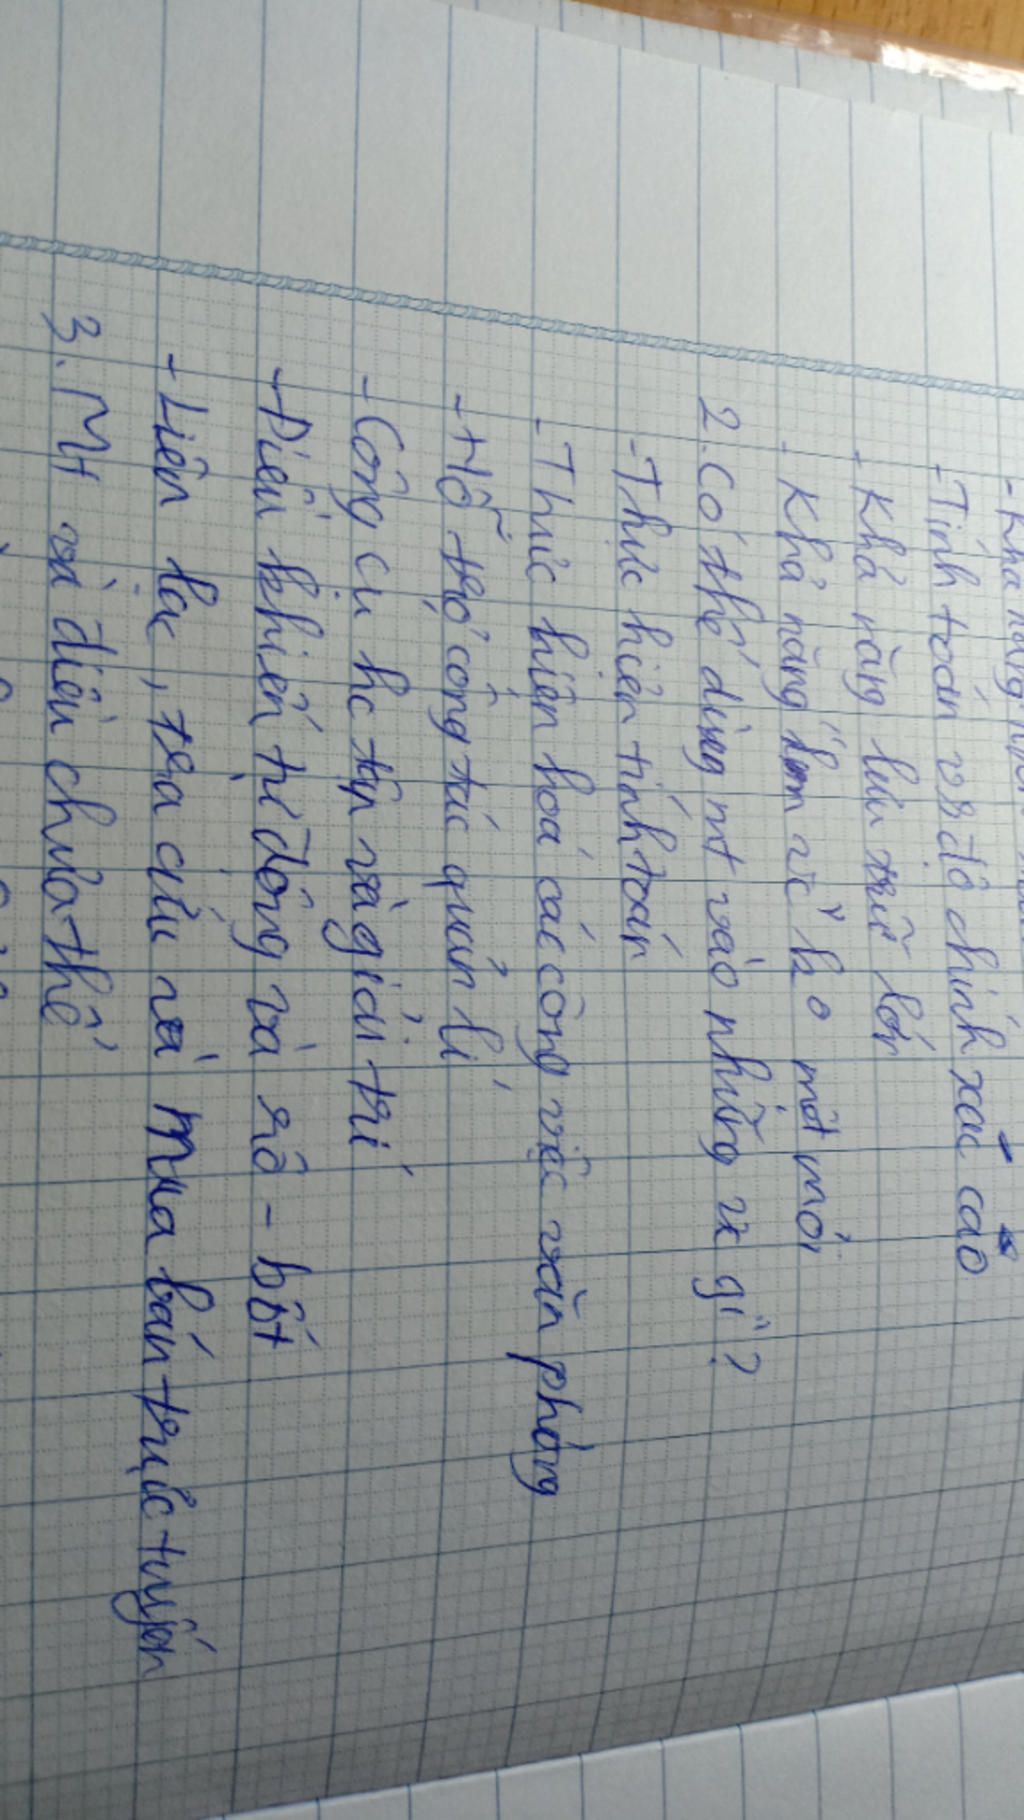 - Khả năng
- Tính toán vs độ chính xác cao
- Khả năng lưu trữ lớn
- Khả năng lm vc k° mệt mỏi
2. Có thể dùng mt vào những vc gì?
- Thực hiện tính toán
- Thực hiện hoá các công việc văn phòng
- Hỗ trợ công tác quản lí
- Công cụ hc tập và giải trí
- Điều khiển tự động và rô - bốt
- Liên lạc, tra cứu và mua bán trực tuyến
3. Mt và điều chưa thể